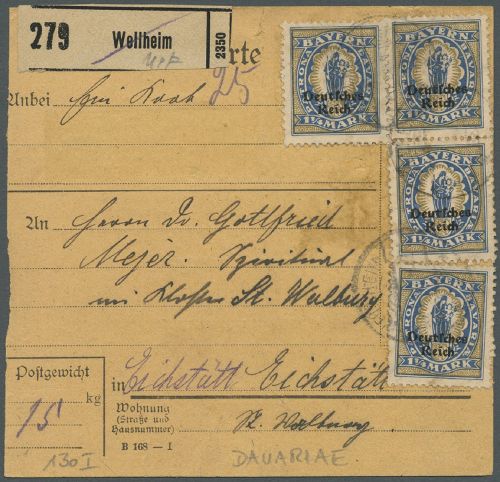 279 Wellheim 2350
rte
Anbei ein Korb 25
BAYERN
Deutsches
Reich
1¼ MARK
BAYERN
Deutsches
Reich
1¼ MARK
BAYERN
Deutsches
Reich
1¼ MARK
BAYERN
Deutsches
Reich
1¼ MARK
An Herrn Dr. Gottfried
Mejer. Spiritual
im Kloster St. Walburg
Postgewicht
15 kg
in Eichstätt Eichstätt
Wohnung
(Straße und
Hausnummer)
St. Walburg
B 168 — I
130 I
DAVARIAE